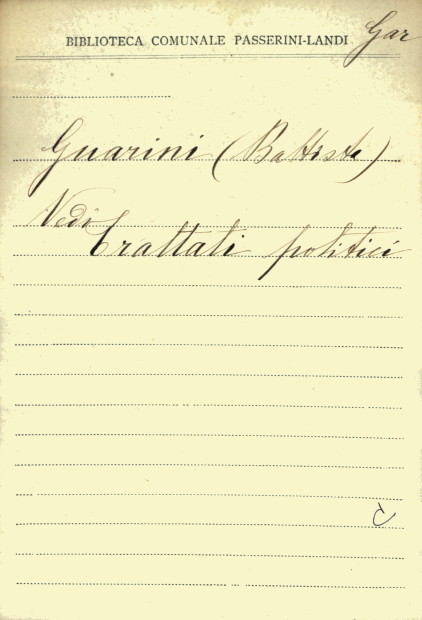 BIBLIOTECA COMUNALE PASSERINI-LANDI Gar
Guarini (Battista)
Vedi
Trattati politici